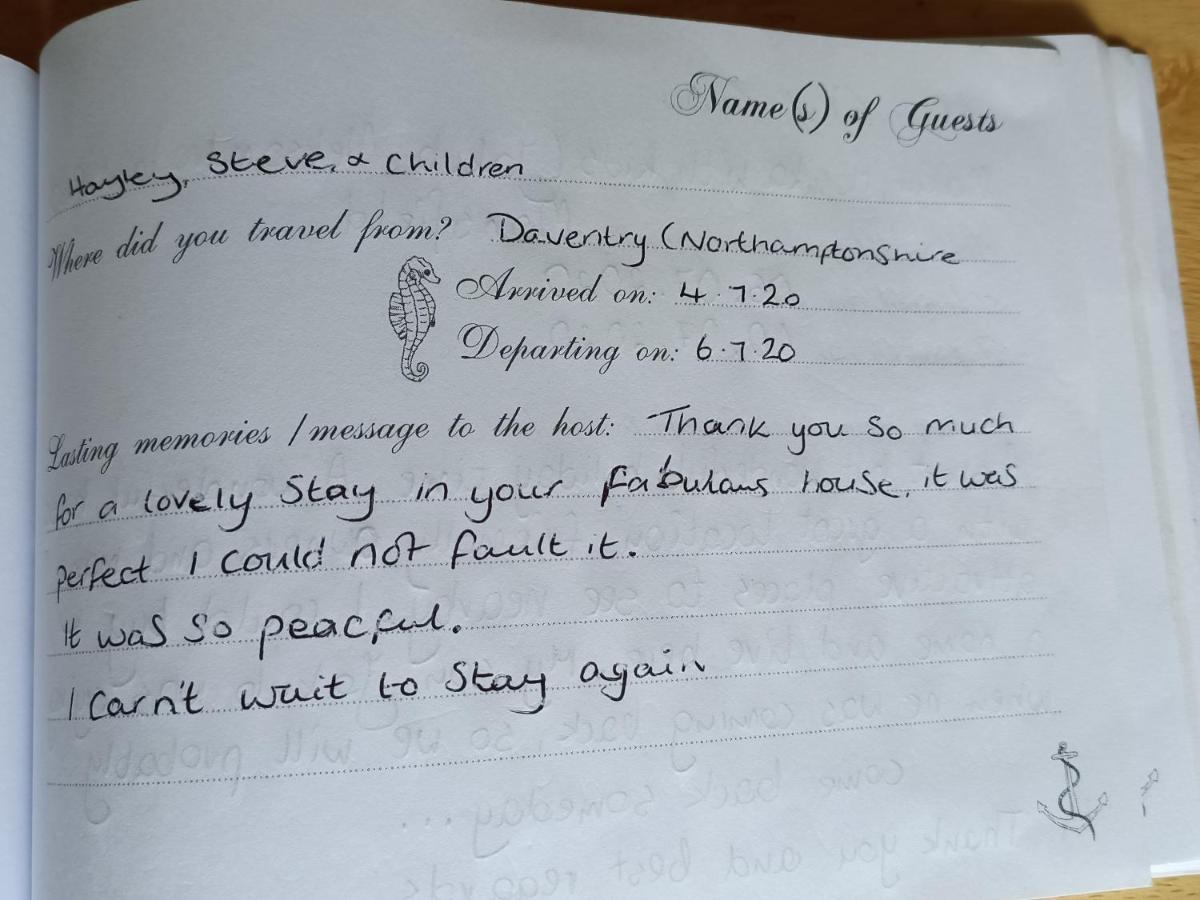 Name(s) of Guests
Hayley, Steve, & Children
Where did you travel from? Daventry (Northamptonshire
Arrived on: 4.7.20
Departing on: 6.7.20
Lasting memories / message to the host: Thank you so much
for a lovely stay in your fabulous house, it was
perfect I could not fault it.
It was so peaceful.
I carn't wait to stay again